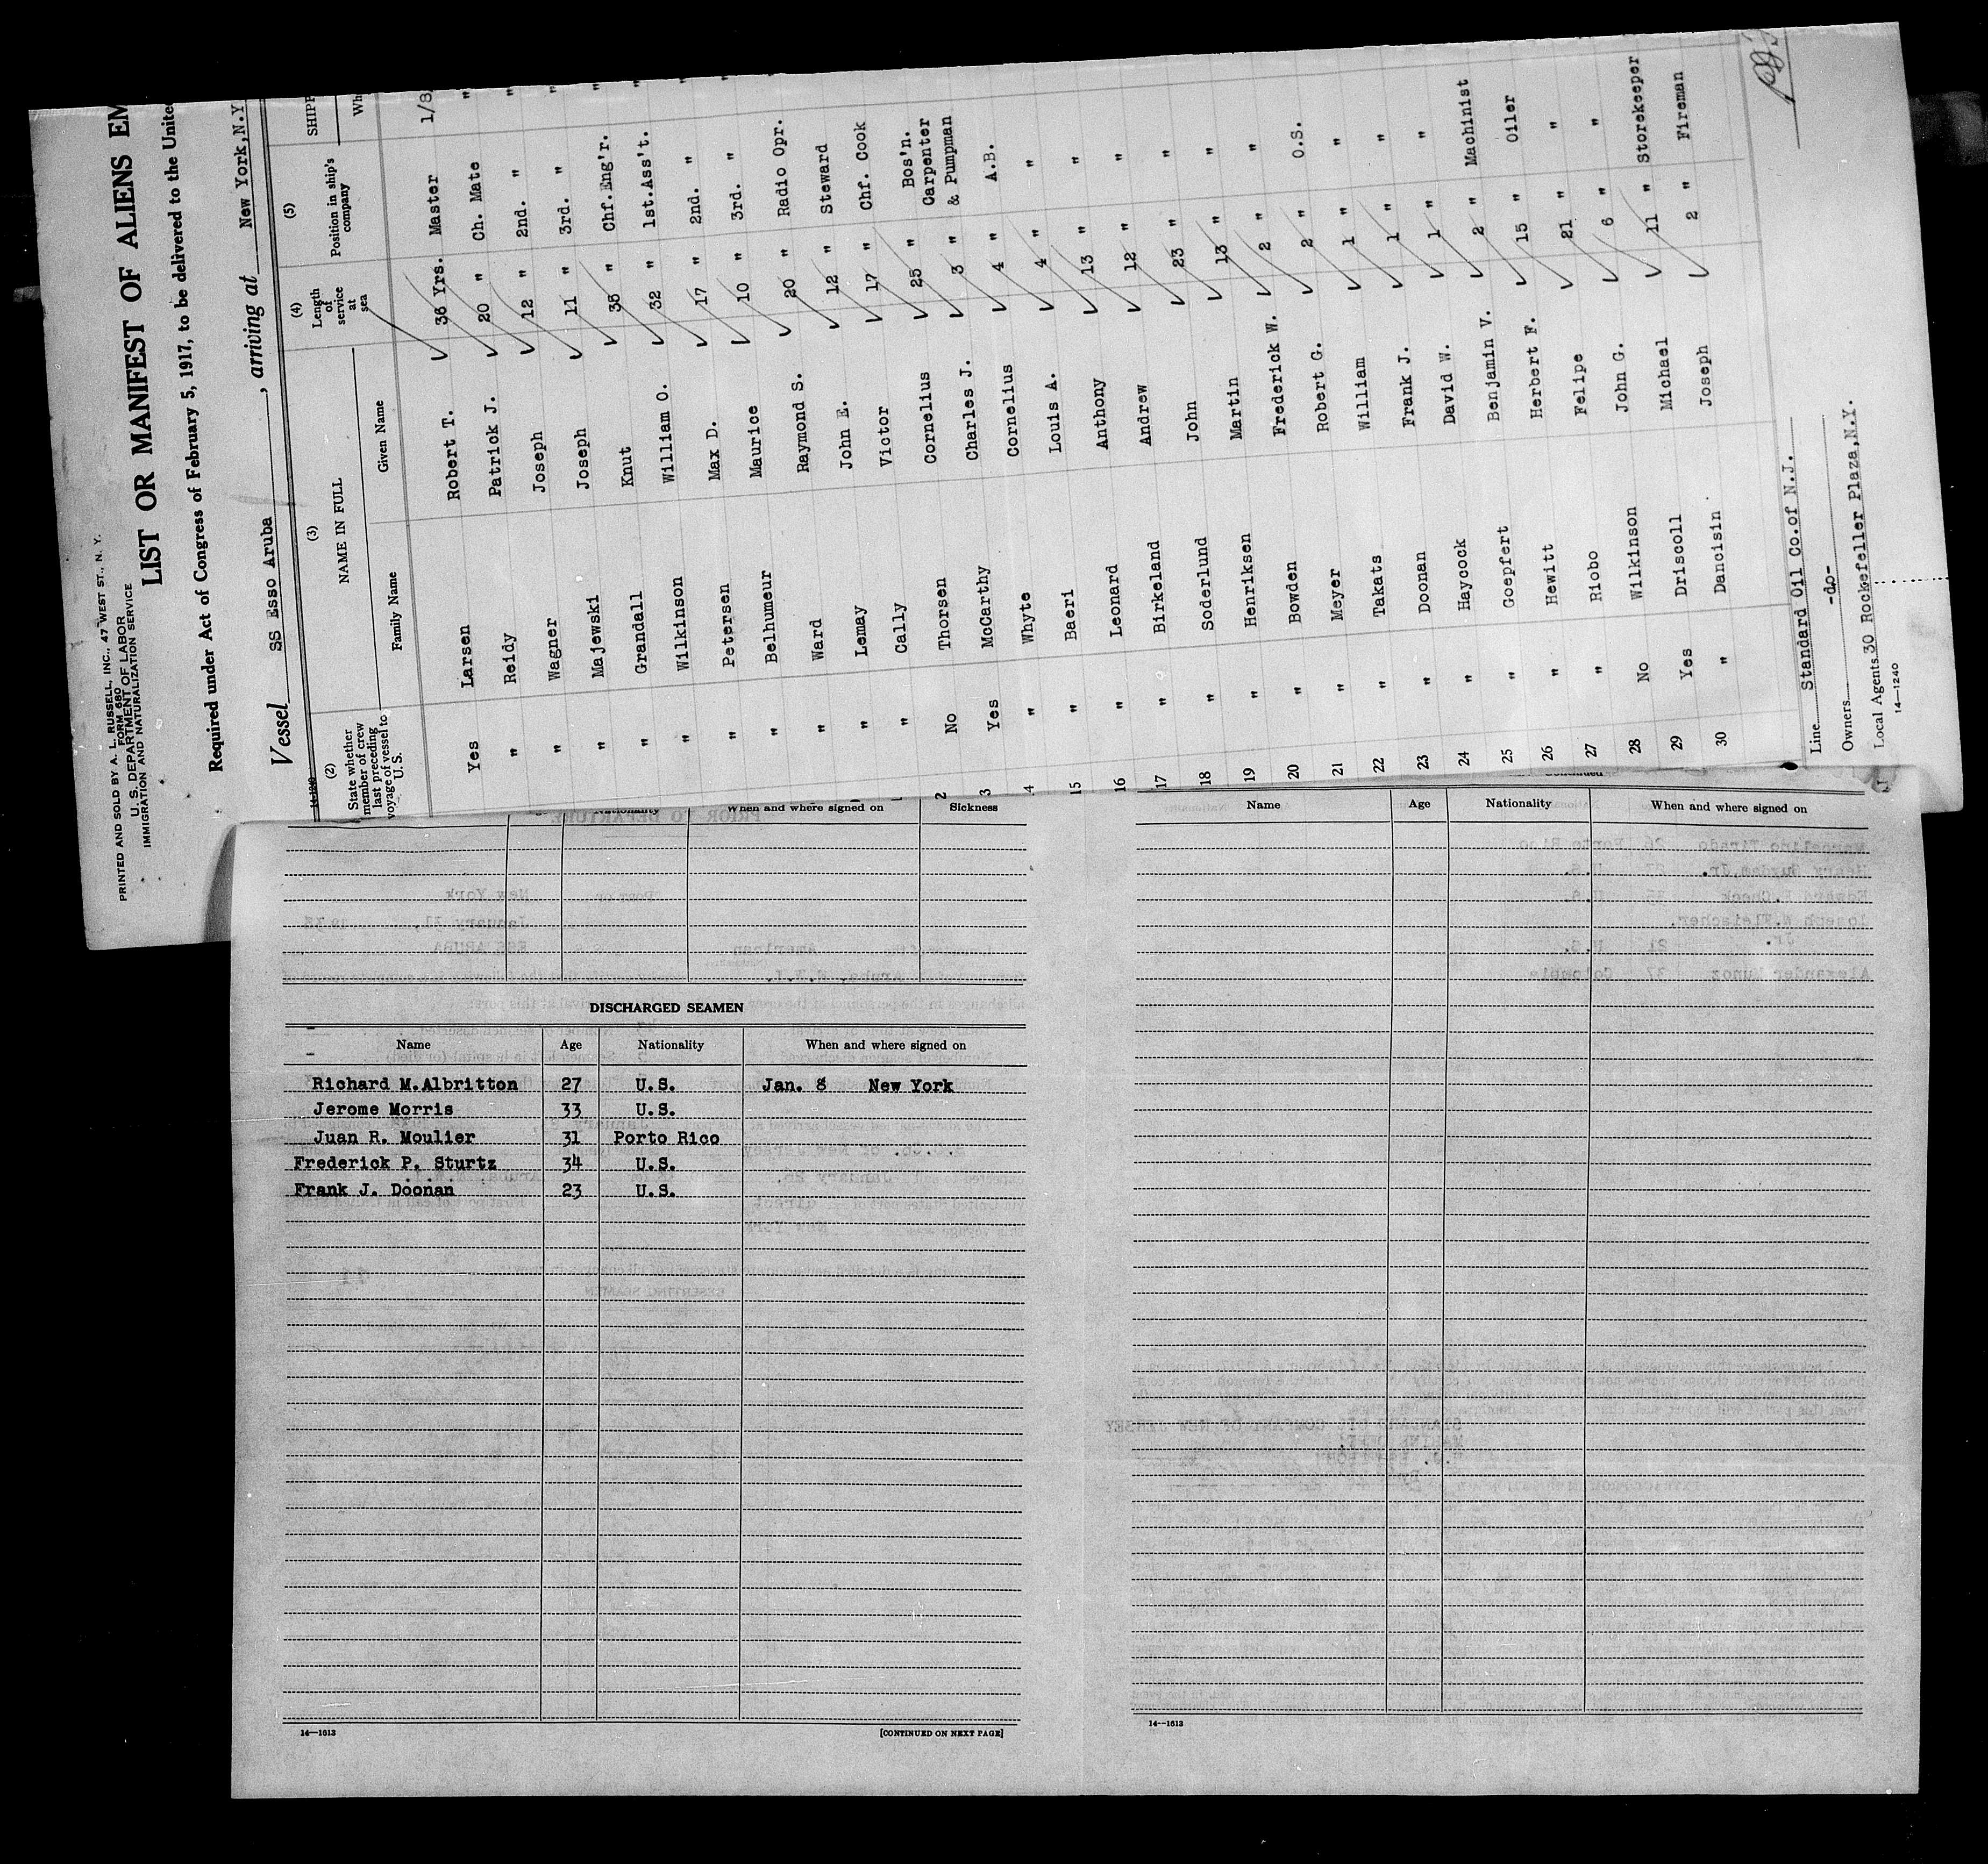 PRINTED AND SOLD BY A. L. RUSSELL, INC., 47 WEST ST., N. Y.
FORM 680
U. S. DEPARTMENT OF LABOR
IMMIGRATION AND NATURALIZATION SERVICE
LIST OR MANIFEST OF ALIENS EM
Required under Act of Congress of February 5, 1917, to be delivered to the Unite
Vessel SS Esso Aruba , arriving at New York,N.Y
14-1240
(2) (3) (4) (5)
State whether member of crew last preceding voyage of vessel to U. S.
NAME IN FULL
Family Name Given Name
Length of service at sea
Position in ship's company
SHIPP
Wh
Yes Larsen Robert T. 36 Yrs. Master 1/8/
" Reidy Patrick J. 20 " Ch. Mate "
" Wagner Joseph 12 " 2nd. " "
" Majewski Joseph 11 " 3rd. " "
" Grandall Knut 35 " Chf.Eng'r. "
" Wilkinson William O. 32 " 1st.Ass't. "
" Petersen Max D. 17 " 2nd. " "
" Belhumeur Maurice 10 " 3rd. " "
" Ward Raymond S. 20 " Radio Opr.
" Lemay John E. 12 " Steward
" Cally Victor 17 " Chf. Cook
2 No Thorsen Cornelius 25 " Bos'n.
3 Yes McCarthy Charles J. 3 " Carpenter & Pumpman
4 " Whyte Cornelius 4 " A.B.
15 " Baeri Louis A. 4 " "
16 " Leonard Anthony 13 " "
17 " Birkeland Andrew 12 " "
18 " Soderlund John 23 " "
19 " Henriksen Martin 13 " "
20 " Bowden Frederick W. 2 " "
21 " Meyer Robert G. 2 " O.S.
22 " Takats William 1 " "
23 " Doonan Frank J. 1 " "
24 " Haycock David W. 1 " "
25 " Goepfert Benjamin V. 2 " Machinist
26 " Hewitt Herbert F. 15 " Oiler
27 " Riobo Felipe 21 " "
28 No Wilkinson John G. 6 " "
29 Yes Driscoll Michael 11 " Storekeeper
30 " Dancisin Joseph 2 " Fireman
Line Standard Oil Co.of N.J.
Owners -do-
Local Agents 30 Rockefeller Plaza,N.Y.
14—1240
Nationality When and where signed on Sickness
DISCHARGED SEAMEN
Name Age Nationality When and where signed on
Richard M.Albritton 27 U.S. Jan. 8 New York
Jerome Morris 33 U.S.
Juan R. Moulier 31 Porto Rico
Frederick P. Sturtz 34 U.S.
Frank J. Doonan 23 U.S.
14—1613 [CONTINUED ON NEXT PAGE]
Name Age Nationality When and where signed on
14—1613